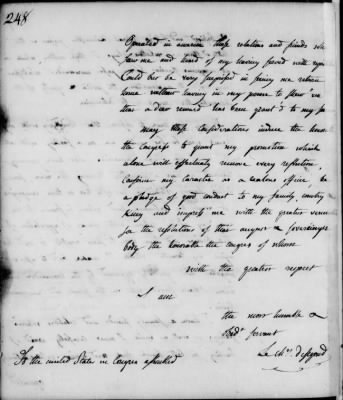 248
Operated in america those relations and friends who
saw me and heard of my having served with
Could but be very surprised in seeing me return
home without having in my power to shew
that a dear reward has been grant'd to my
may these Considerations induce the honble
the Congress to grant my promotion which
alone will effectually remove every reflection
Confirm my Caracter as a zealous officer be
a pledge of good conduct to my family, country
King and impress me with the greatest
for the resolutions of that august & sovereign
body the honorable the congress of whom
with the greatest respect
I am
the most humble &
obedt servant
Le Chr.
To the united State in Congress assembled